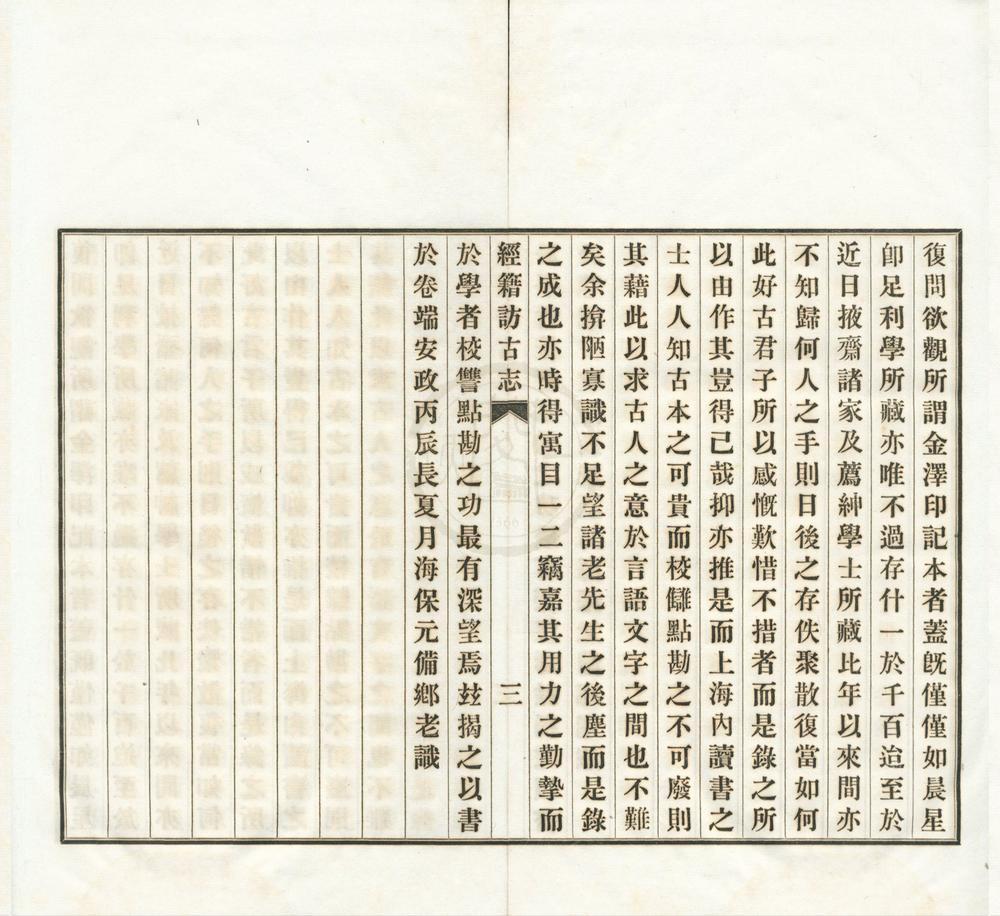 復問欲觀所謂金澤印記本者蓋旣僅僅如晨星
卽足利學所藏亦唯不過存什一於千百迨至於
近日掖齋諸家及薦紳學士所藏比年以來間亦
不知歸何人之手則日後之存佚聚散復當如何
此好古君子所以感慨歎惜不措者而是錄之所
以由作其豈得已哉抑亦推是而上海內讀書之
士人人知古本之可貴而校讎點勘之不可廢則
其藉此以求古人之意於言語文字之間也不難
矣余揜陋寡識不足望諸老先生之後塵而是錄
之成也亦時得寓目一二竊嘉其用力之勤摯而
經籍訪古志 三
於學者校讐點勘之功最有深望焉玆揭之以書
於卷端安政丙辰長夏月海保元備鄕老識